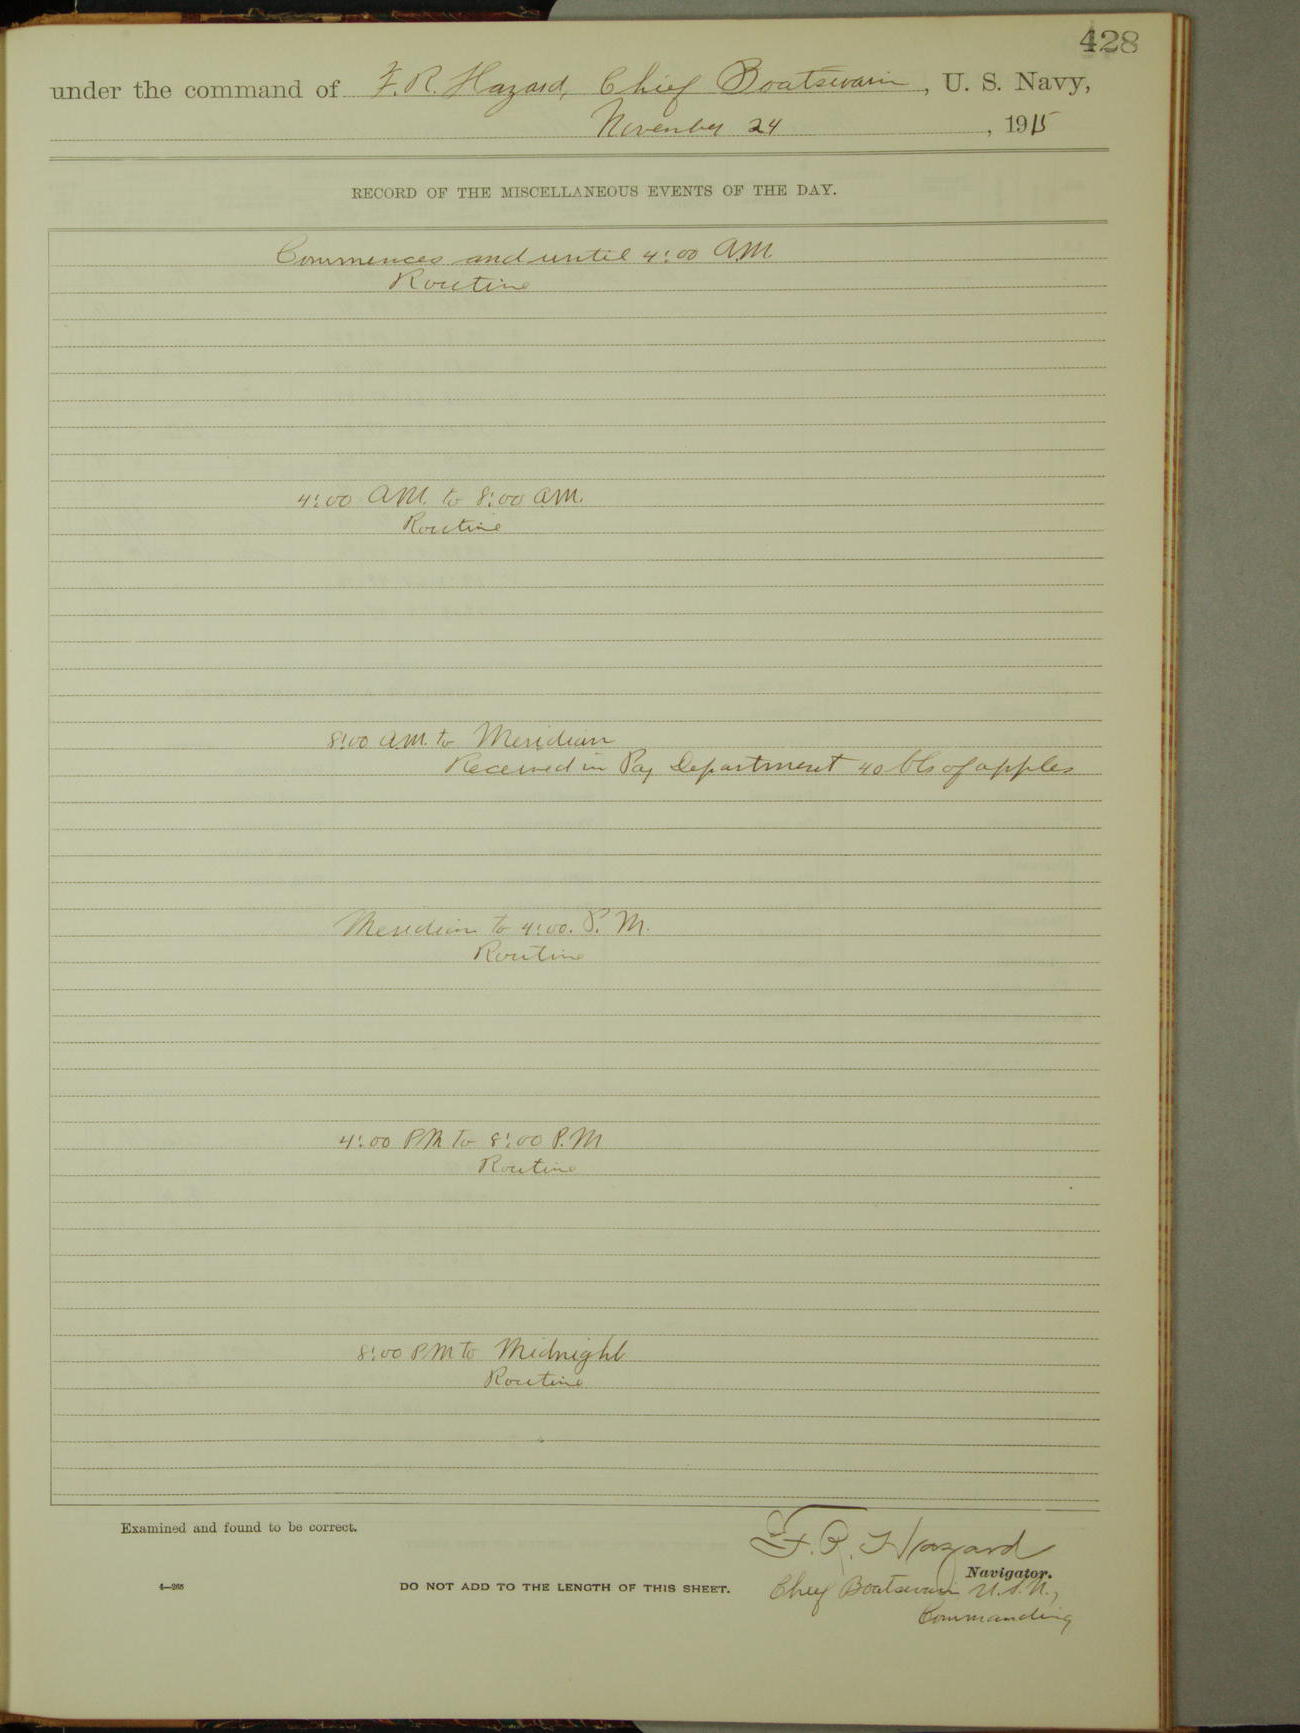 428
under the command of F. R. Hazard, Chief Boatswain, U. S. Navy,
November 24, 1915
RECORD OF THE MISCELLANEOUS EVENTS OF THE DAY.
Commences and until 4:00 A.M.
Routine
4:00 A.M. to 8:00 A.M.
Routine
8:00 A.M. to Meridian
Received in Pay Department 40 bls of apples
Meridian to 4:00. P. M.
Routine
4:00 PM to 8:00 P.M
Routine
8:00 PM to Midnight
Routine
Examined and found to be correct.
F. R. Hazard
Navigator.
4—265
DO NOT ADD TO THE LENGTH OF THIS SHEET.
Chief Boatswain U.S.N.,
Commanding